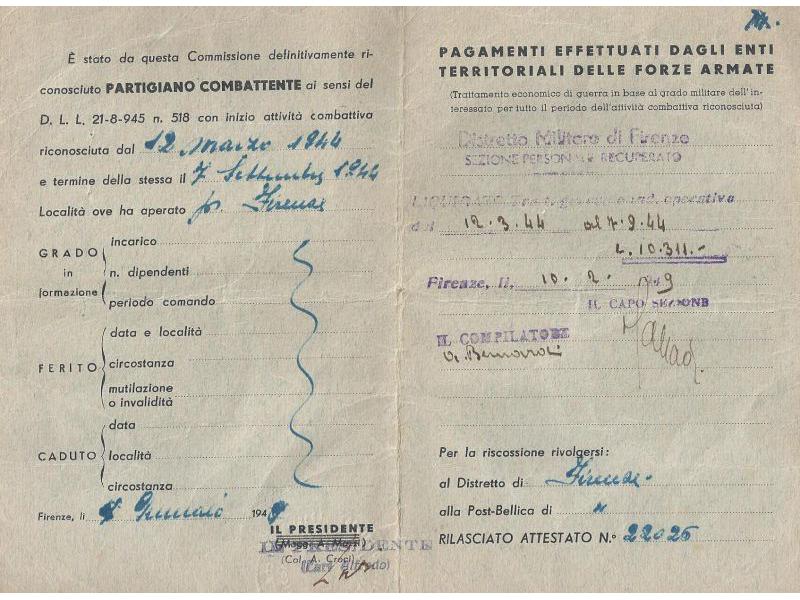 È stato da questa Commissione definitivamente ri-
conosciuto PARTIGIANO COMBATTENTE ai sensi del
D. L. L. 21-8-945 n. 518 con inizio attività combattiva
riconosciuta dal 12 Marzo 1944
e termine della stessa il 7 Settembre 1944
Località ove ha aperato Firenze
GRADO in formazione
incarico
n. dipendenti
periodo comando
FERITO
data e località
circostanza
mutilazione
o invalidità
CADUTO
data
località
circostanza
Firenze, li Gennaio 194
IL PRESIDENTE
(Magg. A.
IL PRESIDENTE
(Col. A. Croci)
PAGAMENTI EFFETTUATI DAGLI ENTI
TERRITORIALI DELLE FORZE ARMATE
(Trattamento economico di guerra in base al grado militare dell'in-
teressato per tutto il periodo dell'attività combattiva riconosciuta)
Distretto Militare di Firenze
SEZIONE PERSONALE RECUPERATO
LIQUIDATO operativa
dal 12.3.44 al 7.9.44
L. 10.311.-
Firenze, li, 10.2. 949
IL CAPO SEZIONE
IL COMPILATORE
Per la riscossione rivolgersi:
al Distretto di Firenze.
alla Post-Bellica di "
RILASCIATO ATTESTATO N.° 22026